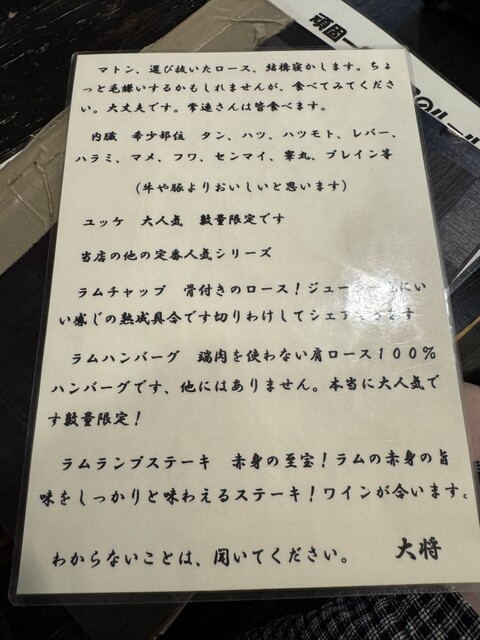 頑固一
のルール
マトン、選び抜いたロース、結構寝かします。ちょ
っと毛嫌いするかもしれませんが、食べてみてくださ
い。大丈夫です。常連さんは皆食べます。
内臓　希少部位　タン、ハツ、ハツモト、レバー、
ハラミ、マメ、フワ、センマイ、睾丸、ブレイン等
（牛や豚よりおいしいと思います）
ユッケ　大人気　数量限定です
当店の他の定番人気シリーズ
ラムチャップ　骨付きのロース！ジューシ にい
い感じの熟成具合です切りわけしてシェア ます
ラムハンバーグ　端肉を使わない肩ロース１００％
ハンバーグです、他にはありません。本当に大人気で
す数量限定！
ラムランプステーキ　赤身の至宝！ラムの赤身の旨
味をしっかりと味わえるステーキ！ワインが合います。
わからないことは、聞いてください。　大将